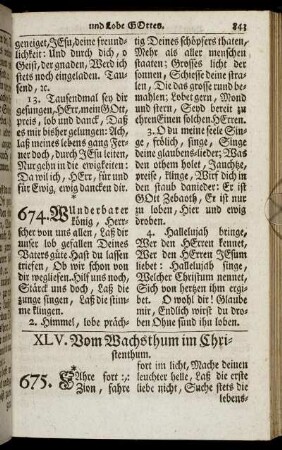 und Lobe GOttes. 843
geneiget, JEsu, deine freund-
lichkeit: Und durch dich, o
Geist, der gnaden, Werd ich
stets noch eingeladen. Tau-
send, ꝛc.
13. Tausendmal sey dir
gesungen, HErr, mein GOtt,
preis, lob und danck, Daß
es mir bisher gelungen: Ach,
laß meines lebens gang Fer-
ner doch, durch JEsu leiten,
Nur gehn in die ewigkeiten:
Da wil ich, HErr, für und
für Ewig, ewig dancken dir.
674. Wunderbarer
könig, Herr-
scher von uns allen, Laß dir
unser lob gefallen Deines
Vaters güte Hast du lassen
triefen, Ob wir schon von
dir wegliefen. Hilf uns noch,
Stärck uns doch, Laß die
zunge singen, Laß die stim-
me klingen.
2. Himmel, lobe präch-
tig Deines schöpfers thaten,
Mehr als aller menschen
staaten: Grosses licht der
sonnen, Schiesse deine stra-
len, Die das grosse rund be-
mahlen; Lobet gern, Mond
und stern, Seyd bereit zu
ehren Einen solchen HErren.
3. O du meine seele Sin-
ge, frölich, singe, Singe
deine glaubens-lieder; Was
den athem holet, Jauchtze,
preise, klinge, Wirf dich in
den staub danieder: Er ist
GOtt Zebaoth, Er ist nur
zu loben, Hier und ewig
droben.
4. Hallelujah bringe,
Wer den HErren kennet,
Wer den HErren JEsum
liebet: Hallelujah singe,
Welcher Christum nennet,
Sich von hertzen ihm ergi-
bet. O wohl dir! Glaube
mir, Endlich wirst du dro-
ben Ohne sünd ihn loben.
XLV. Vom Wachsthum im Chri-
stenthum.
675. Fahre fort :,:
Zion, fahre
fort im licht, Mache deinen
leuchter helle, Laß die erste
liebe nicht, Suche stets die
lebens-